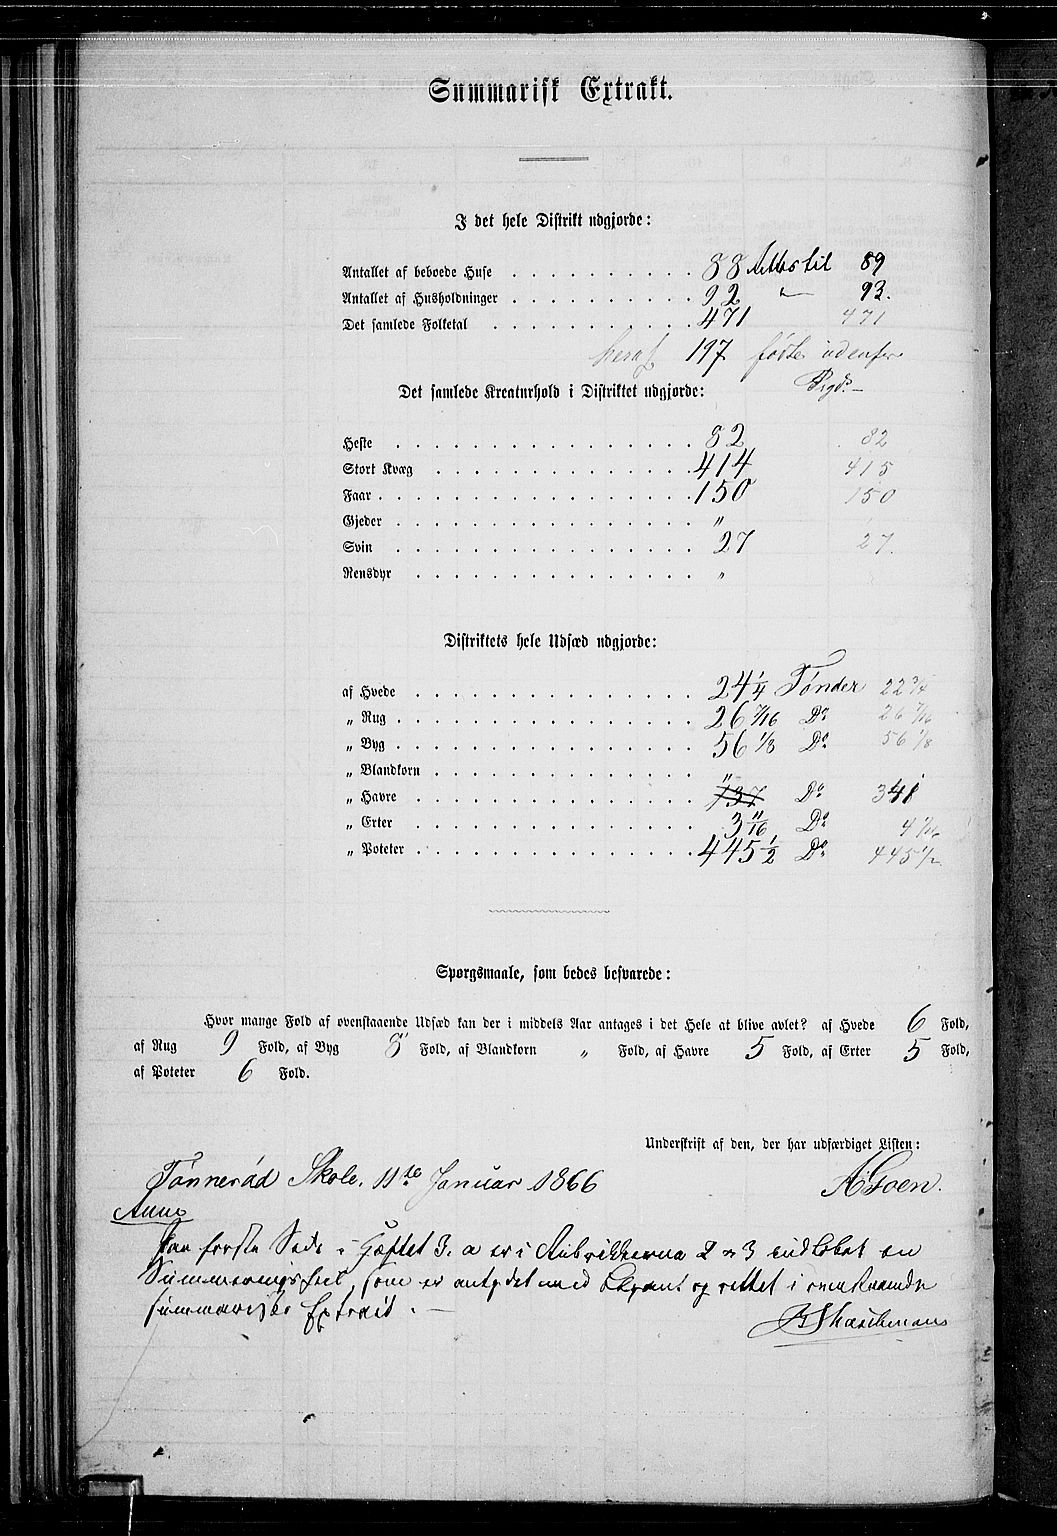 Summarisk Extrakt.
I det hele Distrikt udgjorde:
Antallet af beboede Huse . . . . . . . . . . 88 rettes til 89
Antallet af Husholdninger . . . . . . . . . . 92 " 93.
Det samlede Folketal . . . . . . . . . . . 471 471
heraf 197 fødte udenfor
Bygd.
Det samlede Kreaturhold i Distriktet udgjorde:
Heste . . . . . . . . . . . . . . . . 82 82
Stort Kvæg . . . . . . . . . . . . . . 414 415
Faar . . . . . . . . . . . . . . . . . 150 150
Gjeder . . . . . . . . . . . . . . . . "
Svin . . . . . . . . . . . . . . . . 27 27.
Rensdyr . . . . . . . . . . . . . . . "
Distriktets hele Udsæd udgjorde:
af Hvede . . . . . . . . . . . . . . . 24 1/4 Tønder 22 3/4
„ Rug . . . . . . . . . . . . . . . . 26 7/16 Do 26 7/16
„ Byg . . . . . . . . . . . . . . . . 56 1/8 Do 56 1/8
„ Blandkorn . . . . . . . . . . . . . . "
„ Havre . . . . . . . . . . . . . . . 737 Do 341
„ Erter . . . . . . . . . . . . . . . 3 11/16 Do
„ Poteter . . . . . . . . . . . . . . . 445 1/2 Do. 445 1/2
Spørgsmaale, som bedes besvarede:
Hvor mange Fold af ovenstaaende Udsæd kan der i middels Aar antages i det Hele at blive avlet? af Hvede 6 Fold,
af Rug 9 Fold, af Byg 8 Fold, af Blandkorn " Fold, af Havre 5 Fold, af Erter 5 Fold,
af Poteter 6 Fold.
Underskrift af den, der har udfærdiget Listen:
Tønnerød Skole, 11te Januar 1866 A Goen.
Anm
Paa første Side i Hæftet 3. a er i Rubrikkerne 2 og 3 indløbet en
Summeringsfeil, som er antydet med Blyant og rettet i omstaaende
summariske Extract. —